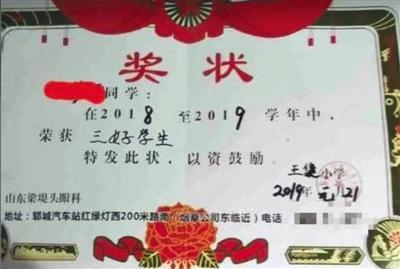 奖状
同学：
在2018至2019学年中，
荣获 三好学生
特发此状，以资鼓励
王堤小学
2019年元月21
山东梁堤头眼科
地址：郓城汽车站红绿灯西200米路南（烟草公司东临近）电话